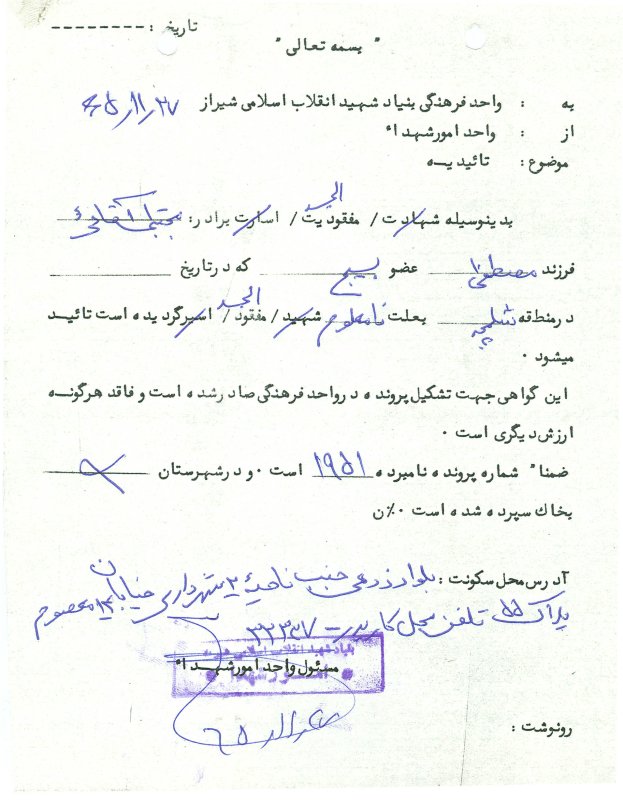 تاریخ : ---------
" بسمه تعالی "
به : واحد فرهنگی بنیاد شهید انقلاب اسلامی شیراز ۶۵/۱۱/۲۷
از : واحد امور شهداء
موضوع : تائیدیه
بدینوسیله شهادت / مفقودیت الجسد / اسارت برادر : مجتبی
فرزند مصطفی عضو بسیج که در تاریخ
در منطقه شلمچه بعلت نامعلوم شهید / مفقود الجسد / اسیر گردیده است تائید
میشود .
این گواهی جهت تشکیل پرونده در واحد فرهنگی صادر شده است و فاقد هرگونه
ارزش دیگری است .
ضمنا" شماره پرونده نامبرده ۱۹۵۱ است . و در شهرستان
بخاک سپرده شده است .
آدرس محل سکونت : بلوار زرهی جنب ناحیه ۲ شهرداری خیابان
۱۲ معصوم
پلاک ۵۵ تلفن محل کار پدر - ۳۲۳۳۷
بنیاد شهید انقلاب اسلامی
مسئول واحد امور شهداء
رونوشت :